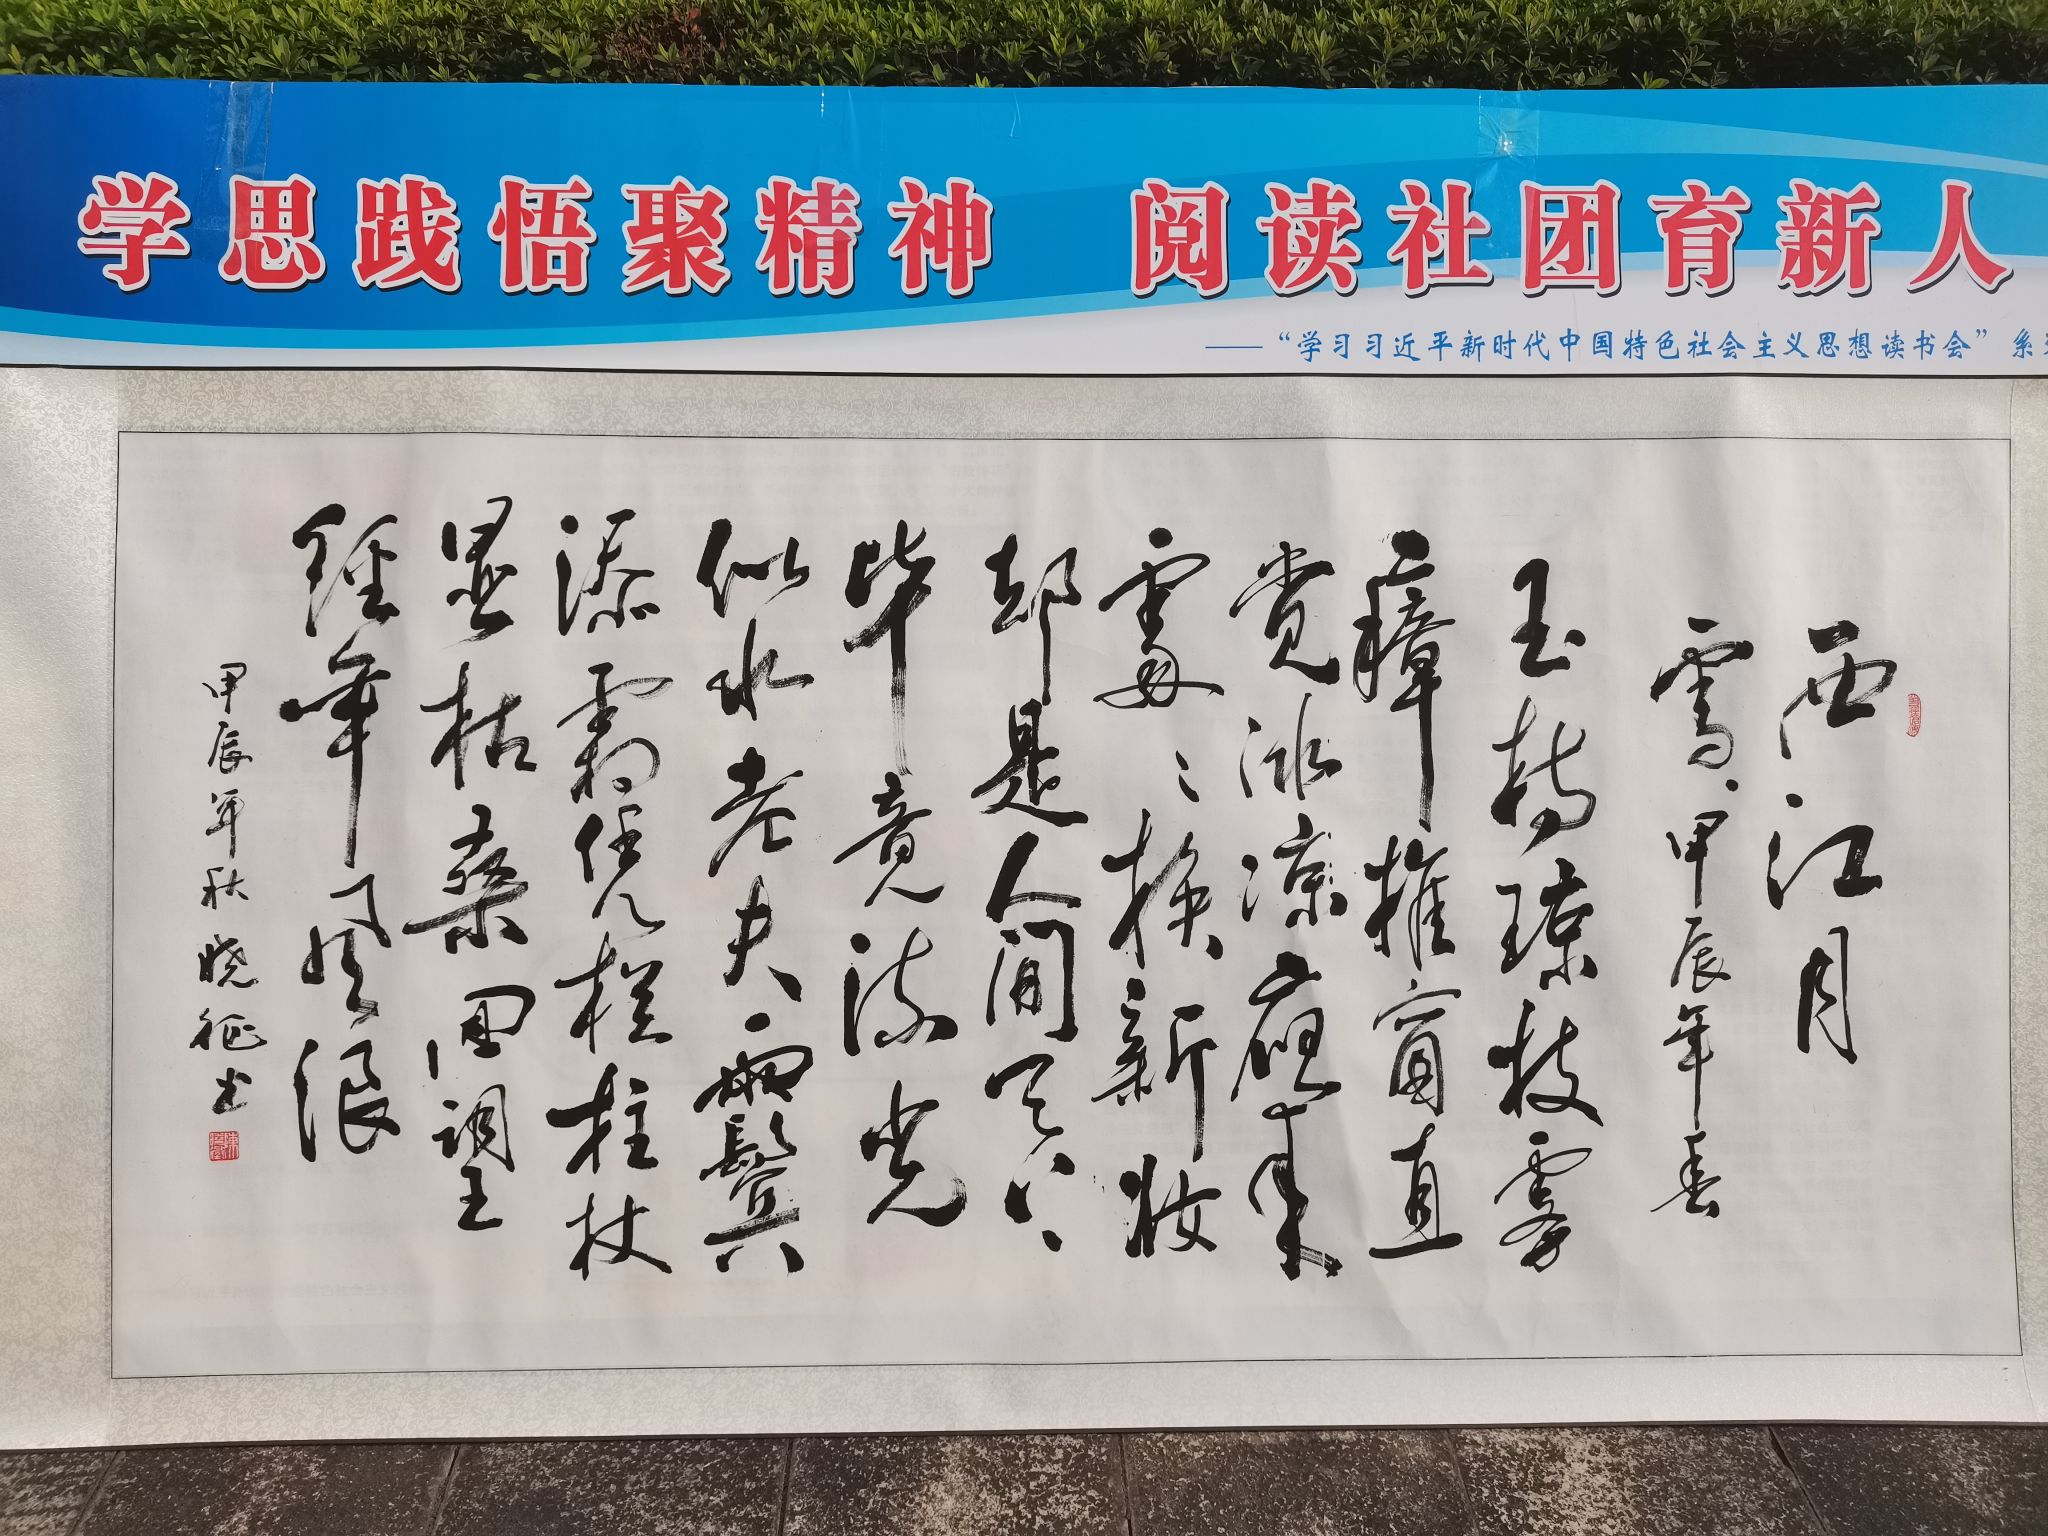 学思践悟聚精神 阅读社团育新人
——“学习习近平新时代中国特色社会主义思想读书会”系
西江月
雪、甲辰年春
玉树琼枝雾
瘴推窗直
觉冰凉应来
处〻换新妆
却是人间天
毕竟流光
似水老夫两鬓
添霜任凭栏拄杖
枯桑田调
经年风浪
甲辰年秋晓征书